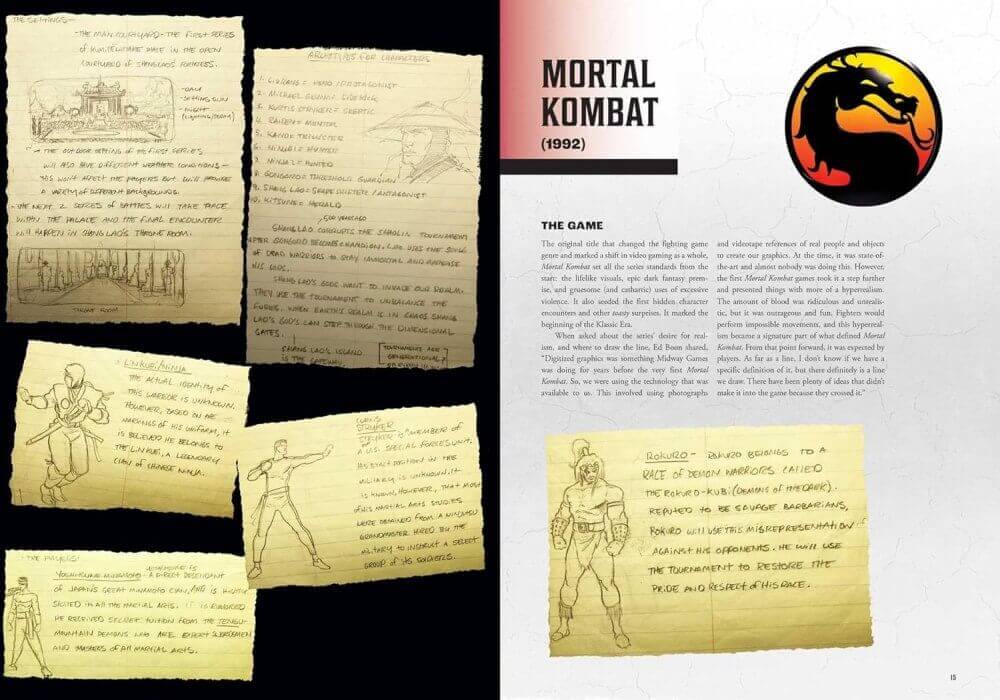 THE SETTINGS—
-THE MAIN COURTYARD- THE FIRST SERIES
OF KUMITE TAKE PLACE IN THE OPEN
COURTYARD OF SHANG LAO'S FORTRESS.
-DAY
-SETTING SUN
-NIGHT
(LIGHTNING/STORM)
→ THE OUTDOOR SETTING OF THE FIRST SERIES
WILL ALSO HAVE DIFFERENT WEATHER CONDITIONS—
THIS WON'T AFFECT THE PLAYERS BUT WILL PROVIDE
A VARIETY OF DIFFERENT BACKGROUNDS.
-THE NEXT 2 SERIES OF BATTLES WILL TAKE PLACE
WITHIN THE PALACE AND THE FINAL ENCOUNTER
WILL HAPPEN IN SHANG LAO'S THRONE ROOM.
THRONE ROOM
ARCHETYPES FOR CHARACTERS
1. LIU KANG = HERO/PROTAGONIST
2. MICHAEL GRIMM = SIDEKICK
3. KURTIS STRYKER = SKEPTIC
4. RAIDEN = MENTOR
5. KANO = TRICKSTER
6. NINJA 1 = HUNTER
7. NINJA 2 = HUNTED
8. GONGORO = THRESHOLD GUARDIAN
9. SHANG LAO = SHAPE SHIFTER/ANTAGONIST
10. KITSUNE = HERALD
500 YEARS AGO
SHANG LAO CORRUPTS THE SHAOLIN TOURNAMENT
AFTER GONGORO BECOMES CHAMPION. LAO USES THE SOULS
OF DEAD WARRIORS TO STAY IMMORTAL AND APPEASE
HIS GODS.
SHANG LAO'S GODS WANT TO INVADE OUR REALM.
THEY USE THE TOURNAMENT TO UNBALANCE THE
FURIES. WHEN EARTH REALM IS IN CHAOS SHANG
LAO'S GODS CAN STEP THROUGH THE DIMENSIONAL
GATES.
SHANG LAO'S ISLAND
IS THE GATEWAY
TOURNAMENTS ARE
GENERATIONAL
LIN KUEI/NINJA
THE ACTUAL IDENTITY OF
THIS WARRIOR IS UNKNOWN.
HOWEVER, BASED ON THE
MARKINGS OF HIS UNIFORM, IT
IS BELIEVED HE BELONGS TO
THE LIN KUEI, A LEGENDARY
CLAN OF CHINESE NINJA.
CURTIS
STRYKER
STRYKER IS A MEMBER OF
A U.S. SPECIAL FORCES UNIT.
HIS EXACT POSITION IN THE
MILITARY IS UNKNOWN. IT
IS KNOWN, HOWEVER, THAT MOST
OF HIS MARTIAL ARTS STUDIES
WERE OBTAINED FROM A NINJITSU
GRANDMASTER HIRED BY THE
MILITARY TO INSTRUCT A SELECT
GROUP OF ITS SOLDIERS.
-THE PLAYERS:
YOSHITSUNE MINAMOTO - A DIRECT DESCENDANT
OF JAPAN'S GREAT MINAMOTO CLAN, AND IS HIGHLY
SKILLED IN ALL THE MARTIAL ARTS. IT IS RUMORED
HE RECEIVED SECRET TUITION FROM THE TENGU-
MOUNTAIN DEMONS WHO ARE EXPERT SWORDSMEN
AND MASTERS OF ALL MARTIAL ARTS.
MORTAL
KOMBAT
(1992)
THE GAME
The original title that changed the fighting game
genre and marked a shift in video gaming as a whole,
Mortal Kombat set all the series standards from the
start: the lifelike visuals, epic dark fantasy prem-
ise, and gruesome (and cathartic) uses of excessive
violence. It also seeded the first hidden character
encounters and other toasty surprises. It marked the
beginning of the Klassic Era.
When asked about the series' desire for real-
ism, and where to draw the line, Ed Boon shared,
"Digitized graphics was something Midway Games
was doing for years before the very first Mortal
Kombat. So, we were using the technology that was
available to us. This involved using photographs
and videotape references of real people and objects
to create our graphics. At the time, it was state-of-
the-art and almost nobody was doing this. However,
the first Mortal Kombat games took it a step further
and presented things with more of a hyperrealism.
The amount of blood was ridiculous and unrealis-
tic, but it was outrageous and fun. Fighters would
perform impossible movements, and this hyperreal-
ism became a signature part of what defined Mortal
Kombat. From that point forward, it was expected by
players. As far as a line, I don't know if we have a
specific definition of it, but there definitely is a line
we draw. There have been plenty of ideas that didn't
make it into the game because they crossed it."
ROKURO - ROKURO BELONGS TO A
RACE OF DEMON WARRIORS CALLED
THE ROKURO-KUBI (DEMONS OF THE DARK).
REPUTED TO BE SAVAGE BARBARIANS,
ROKURO WILL USE THIS MISREPRESENTATION
AGAINST HIS OPPONENTS. HE WILL USE
THE TOURNAMENT TO RESTORE THE
PRIDE AND RESPECT OF HIS RACE.
15